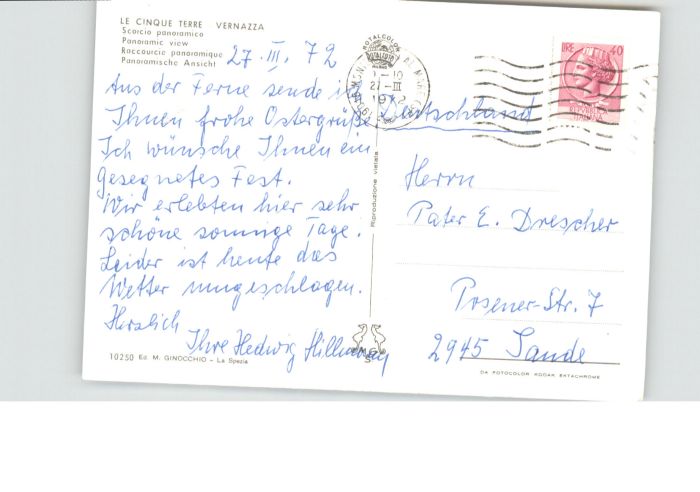 LE CINQUE TERRE VERNAZZA
Scorcio panoramico
Panoramic view
Raccourcie panoramique
Panoramische Ansicht
27. III. 72
Aus der Ferne sende ich
Ihnen frohe Ostergrüße
Ich wünsche Ihnen ein
gesegnetes Fest.
Wir erlebten hier sehr
schöne sonnige Tage.
Leider ist heute das
Wetter umgeschlagen.
Herzlich
Ihre Hedwig
10250 Ed. M. GINOCCHIO - La Spezia
Riproduzione vietata
ROTALCOLOR
ROTALFOTO
27 -III
1972
LIRE 40
REPUBBLICA
ITALIANA
Deutschland
Herrn
Pater E. Drescher
Posener-Str. 7
2945 Sande
DA FOTOCOLOR KODAK EKTACHROME